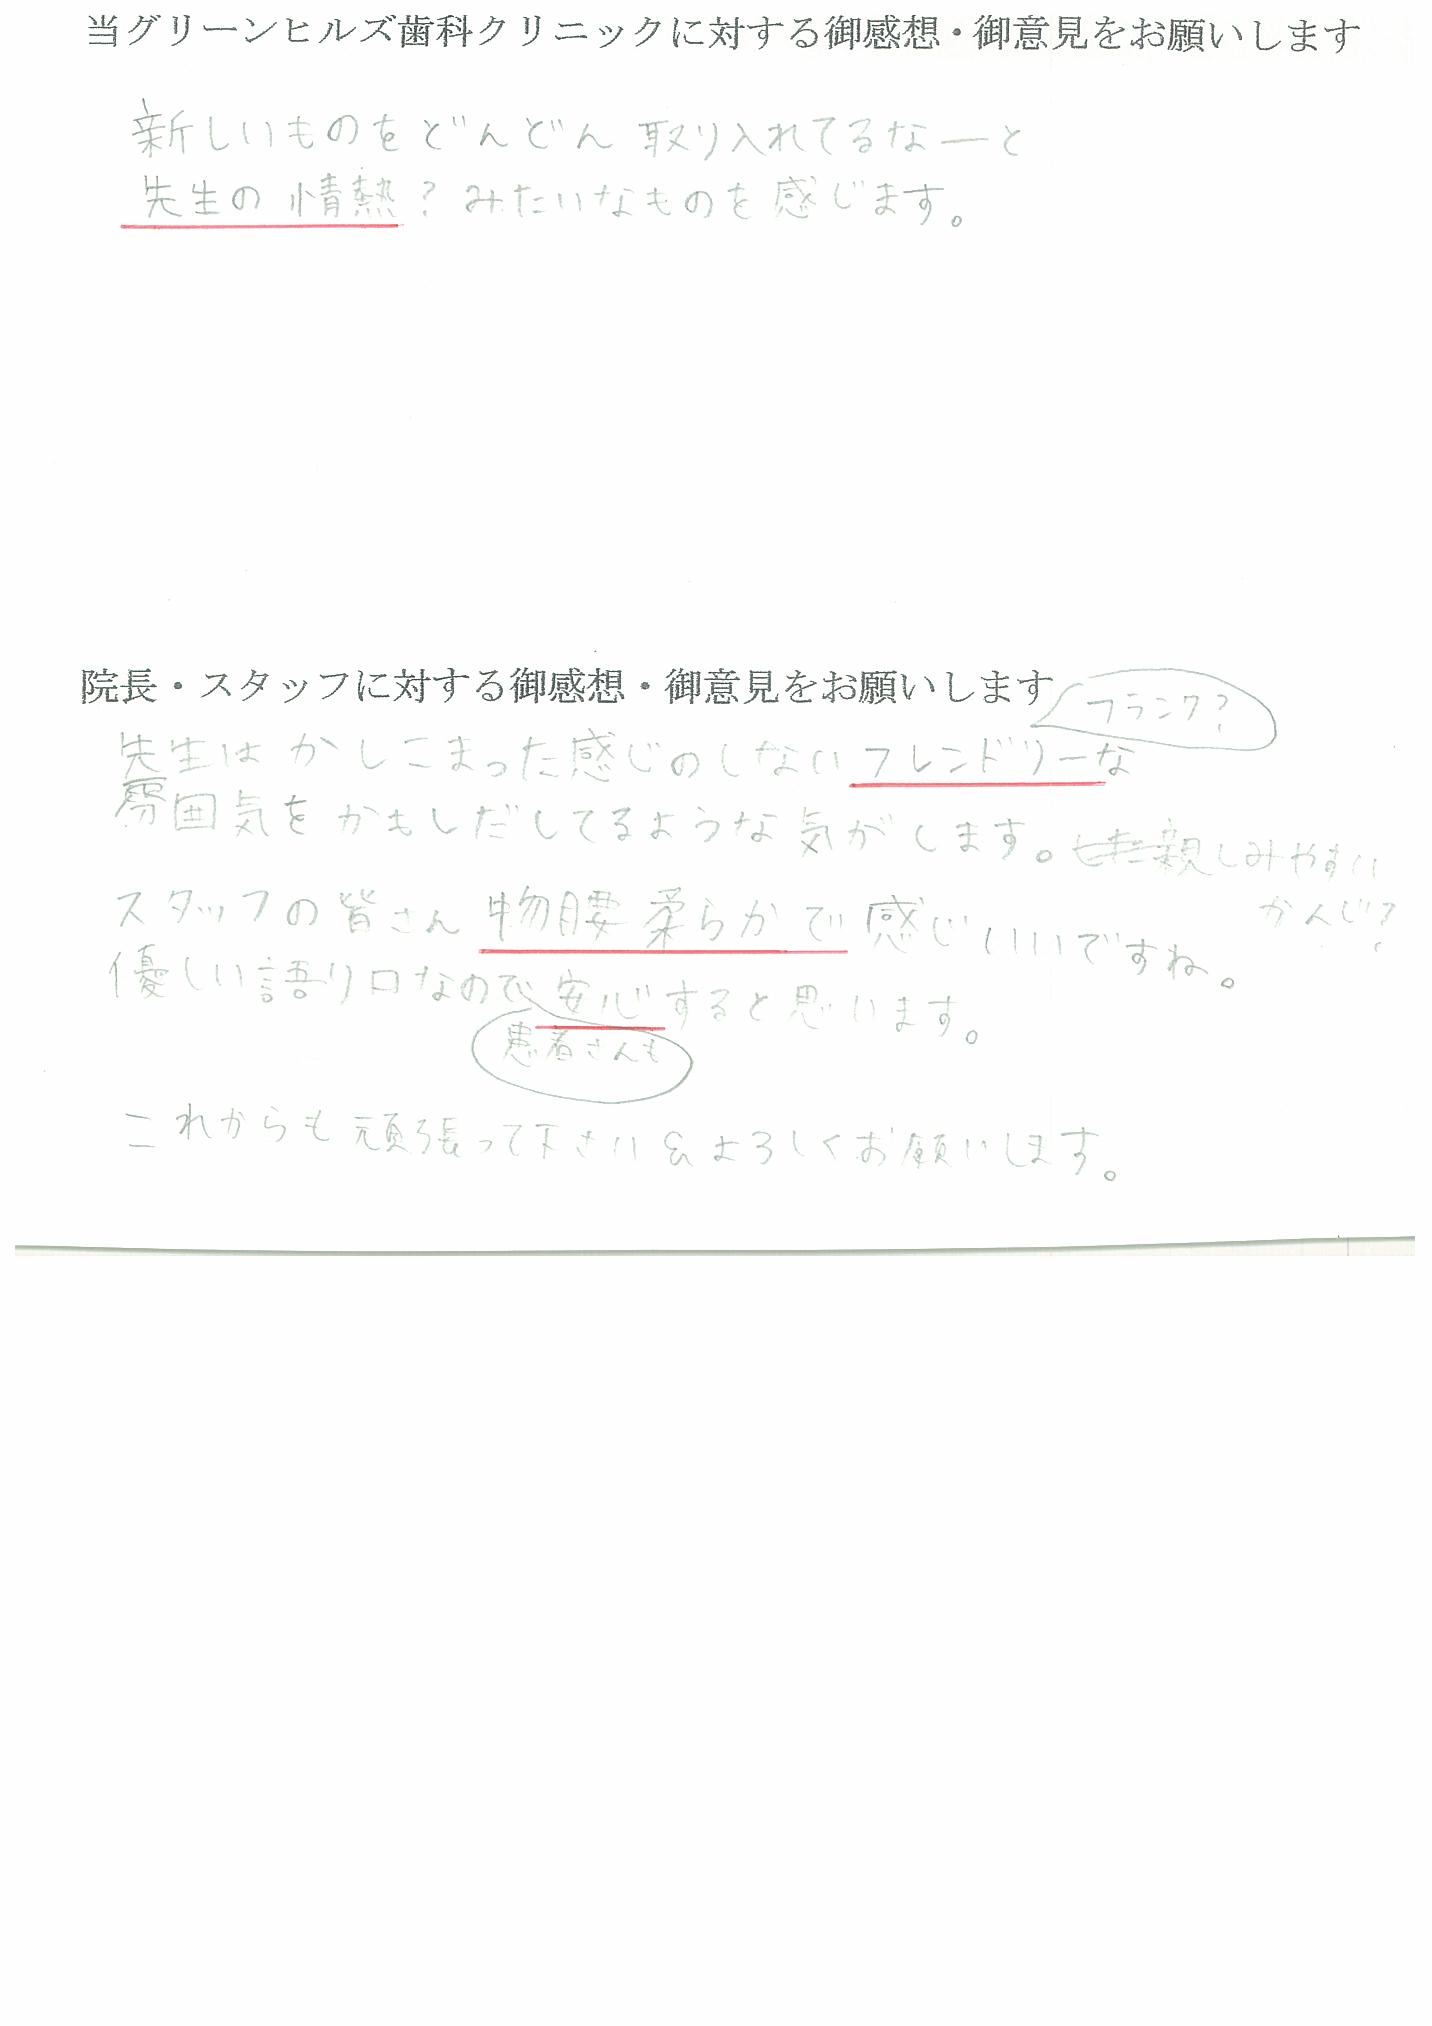 当グリーンヒルズ歯科クリニックに対する御感想・御意見をお願いします
新しいものをどんどん取り入れてるなーと
先生の情熱?みたいなものを感じます。
院長・スタッフに対する御感想・御意見をお願いします
フランク?
先生はかしこまった感じのしないフレンドリーな
雰囲気をかもしだしてるような気がします。親しみやすい
かんじ?
スタッフの皆さん物腰柔らかで感じいいですね。
優しい語り口なので安心すると思います。
患者さんも
これからも頑張って下さい&よろしくお願いします。